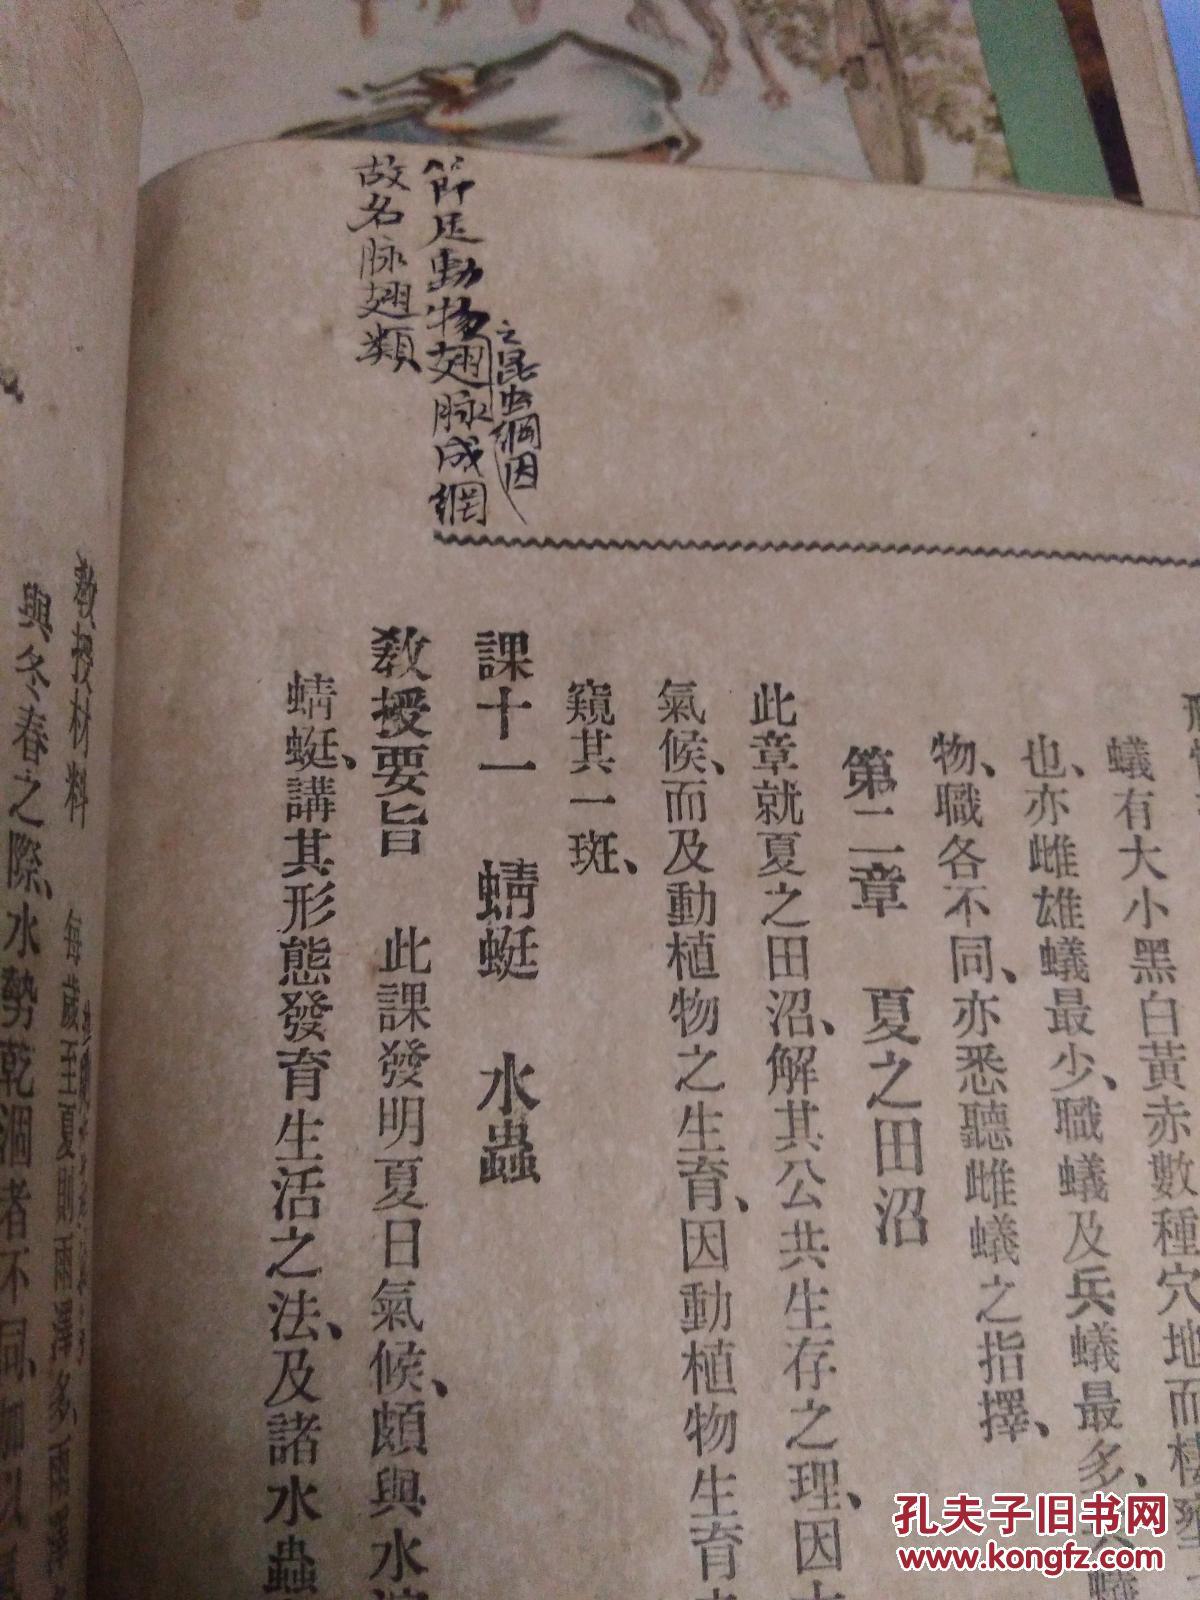 節足動物翅脉成網
之昆虫綱因
故名脉翅類
蟻有大小黑白黃赤數種穴地而棲
也、亦雌雄蟻最少、職蟻及兵蟻最多、
物、職各不同、亦悉聽雌蟻之指擇、
第二章 夏之田沼
此章就夏之田沼、解其公共生存之理、因
氣候、而及動植物之生育、因動植物生育
窺其一斑、
課十一 蜻蜓 水蟲
教授要旨 此課發明夏日氣候、頗與水
蜻蜓、講其形態發育生活之法、及諸水蟲
教授材料 每歲至夏則雨澤多
與冬春之際、水勢乾涸者不同、加以
孔夫子旧书网
www.kongfz.com